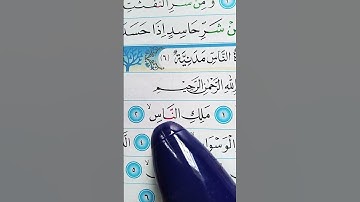 وَمِنْ شَرِّ النَّفّٰثٰتِ
مِنْ شَرِّ حَاسِدٍ اِذَا حَسَدَ
النَّاسِ مَدَنِيَّةٌ (٦)
اللهِ الرَّحْمٰنِ الرَّحِيْمِ
١ مَلِكِ النَّاسِ ۙ ٢
الْوَسْوَا ٤
٥